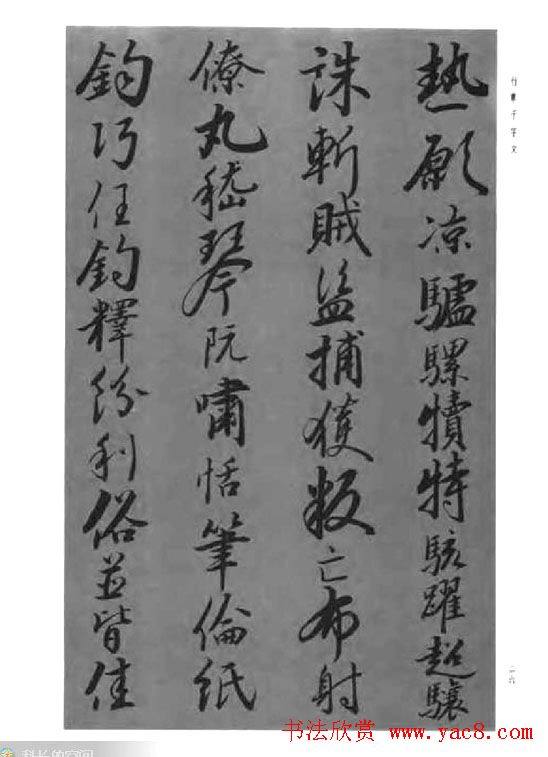 行書千字文
熱願凉驢騾犢特駭躍超驤
誅斬賊盜捕獲叛亡布射
僚丸嵇琴阮嘯恬筆倫紙
鈞巧任釣釋紛利俗並皆佳
书法欣赏 www.yac8.com